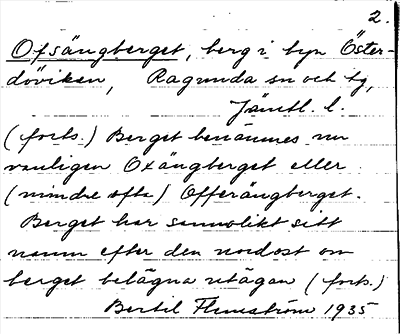 2.
Ofsängberget, berg i byn Öster-
döviken, Ragunda sn och tg,
Jämtl. l.
(forts.) Berget benämnes nu
vanligen Oxängberget eller
(mindre ofta) Offerängberget.
Berget har sannolikt sitt
namn efter den nordost om
berget belägna utägan (forts.)
Bertil Flemström 1935